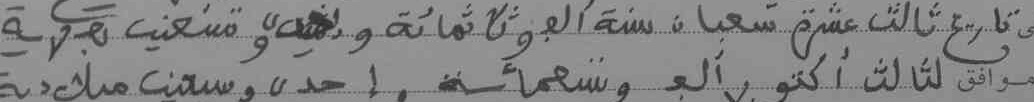 تاريخ ثالث عشرة شعبان سنة ألف وثلاثمائة و وتسعين هجرية
موافق لثالث أكتوبر ألف وتسعمائة وإحدى وسبعين ميلادية